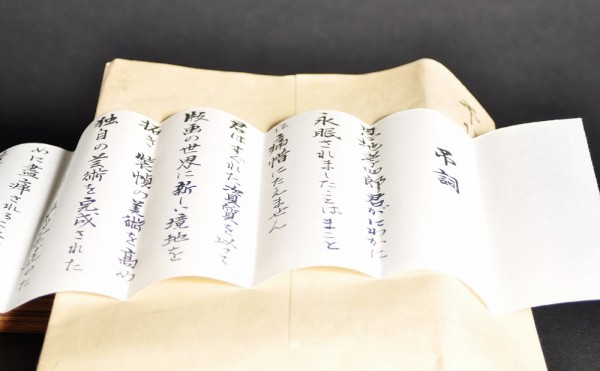 吊詞
恩地孝四郎君がにわかに
永眠されましたことはまこと
に痛惜にたえません
君はすぐれた資質を以て
版画の世界に新しい境地を
拓き装幀の美術を高め
独自の芸術を完成された
めに盡瘁されること